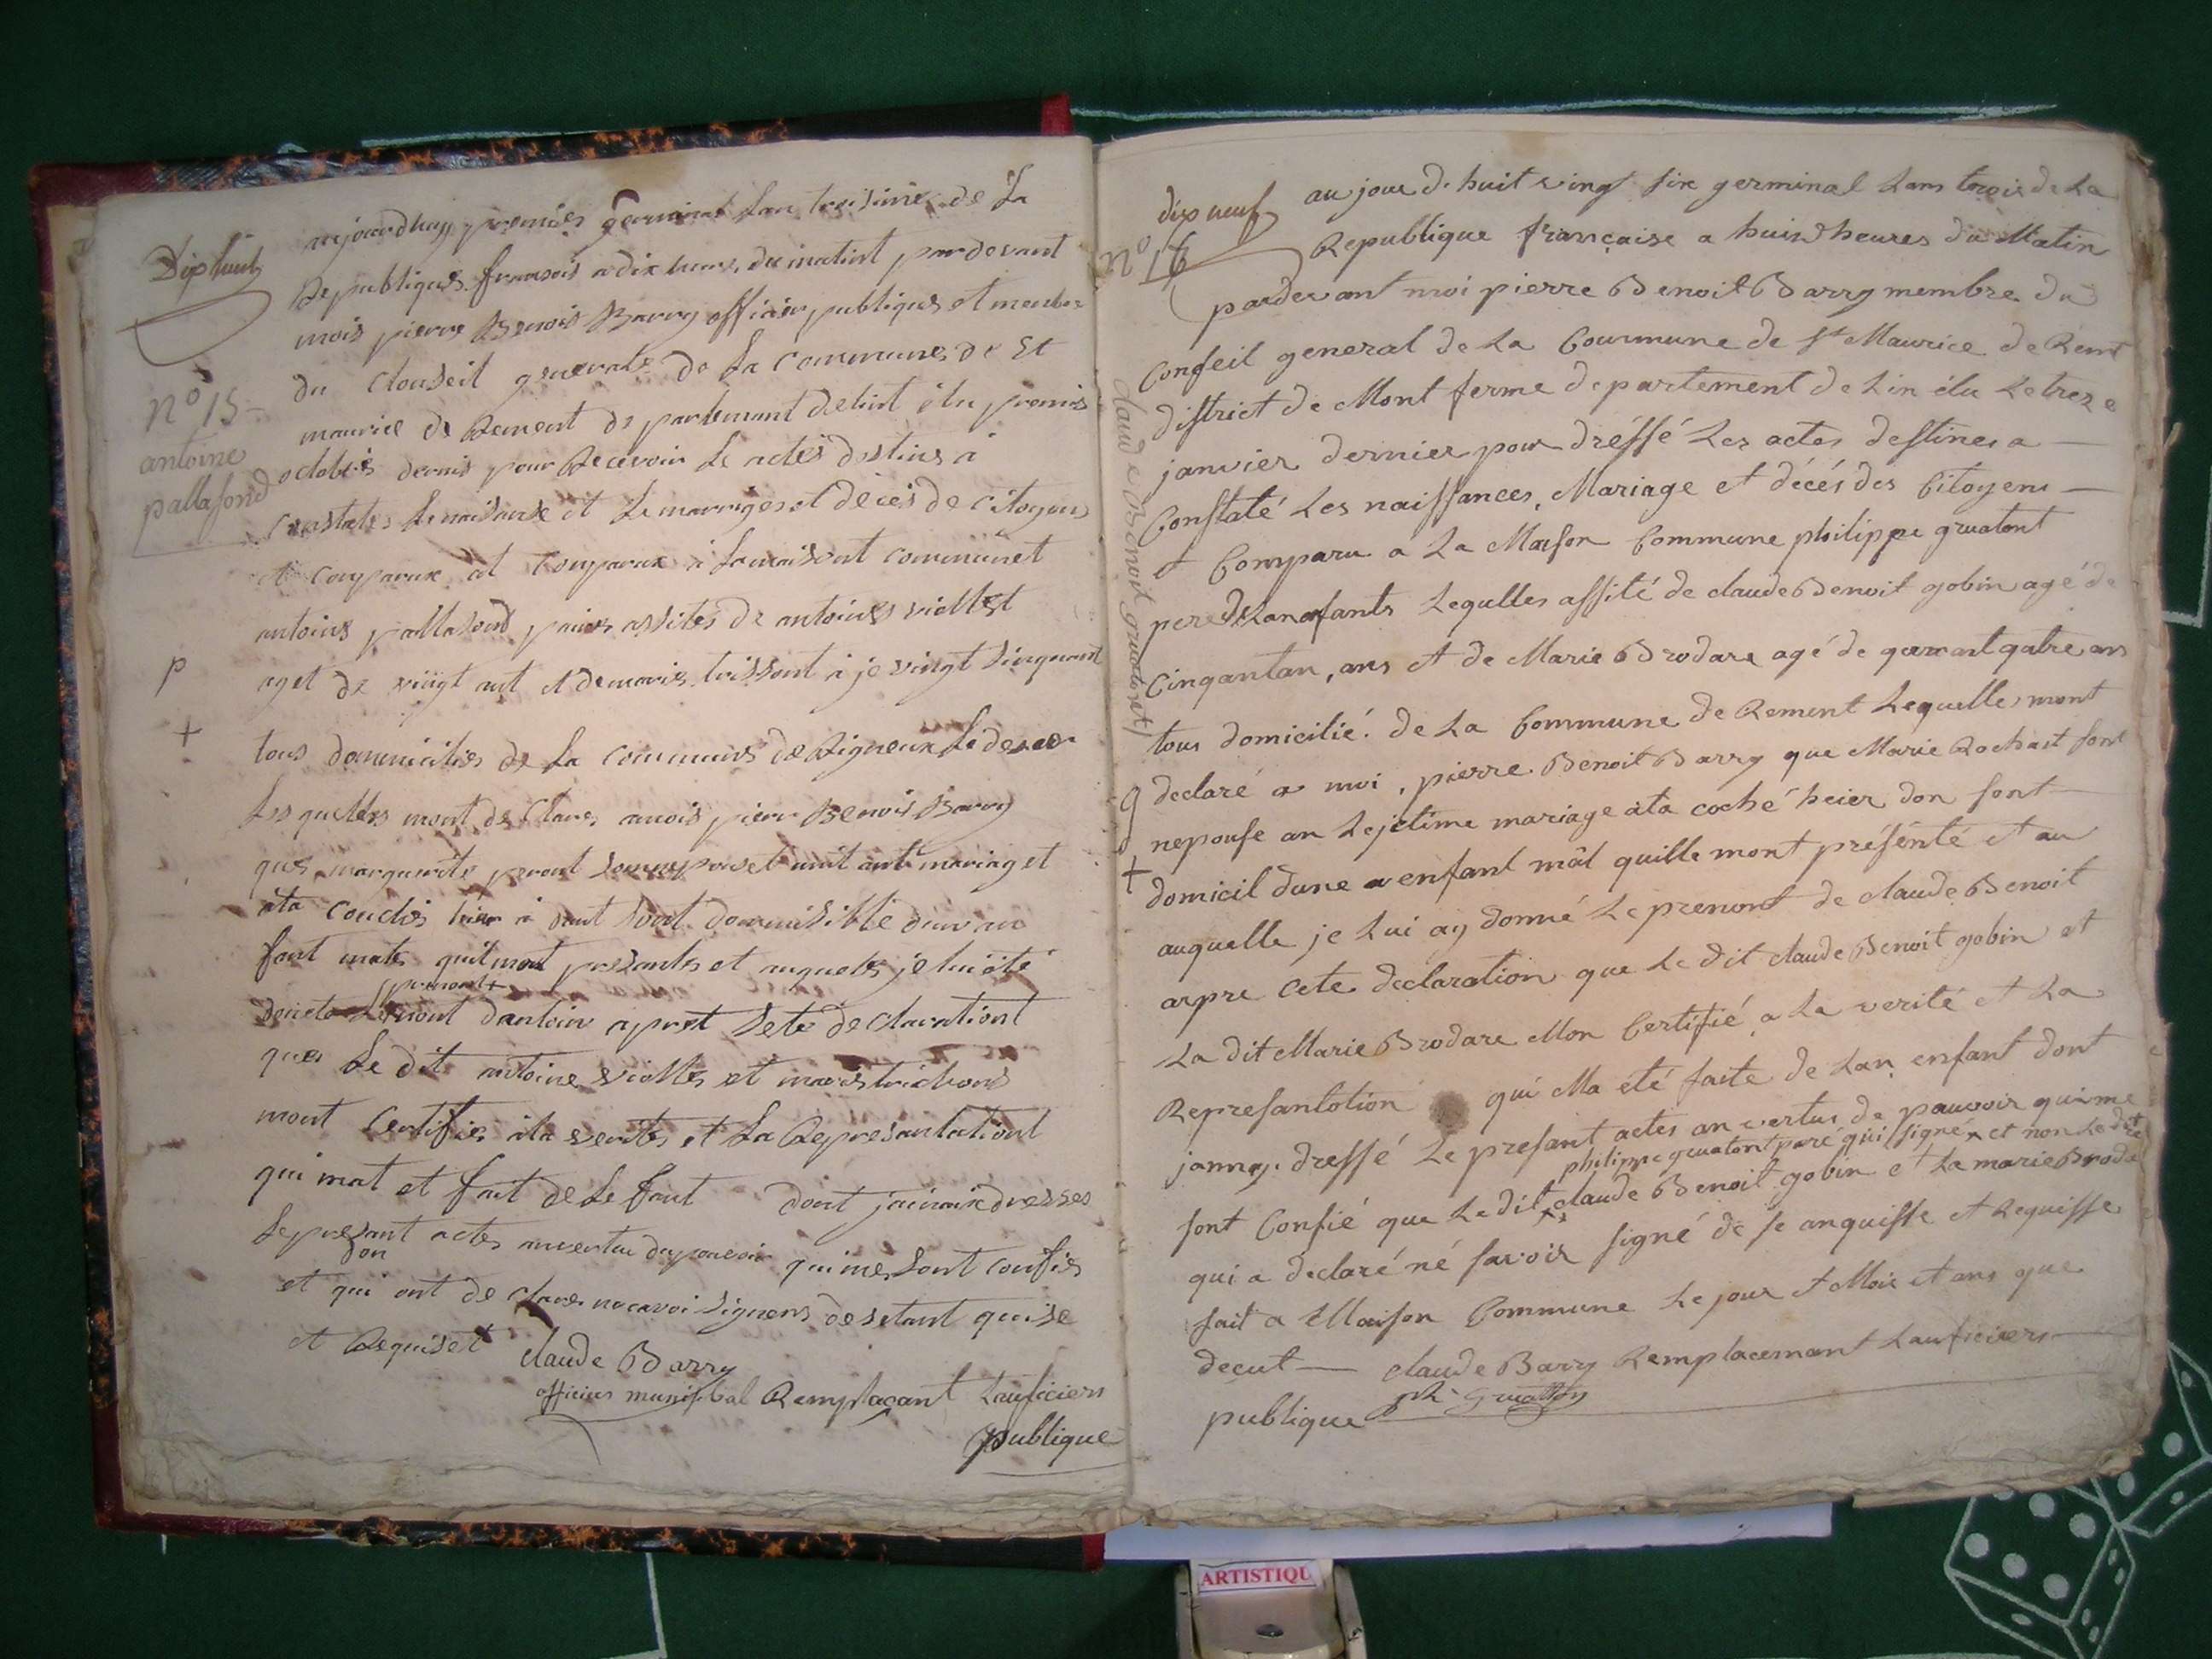 Dixhuit
n° 15
antoine
pallasond
p
+
aujourdhuy premier germinal Lan troisime de La
Republiques fransois a dix heure du matint par devant
mois pierre Benois Barry officier publiques et membre
du Clonseil generale de La Communes de St
maurice de Rement de partemant delint élu premis
octobris dernis pour Recevoir Le actés destins à
Constates Le naisanse et Le marriges et décés de Citoyens
et comparux à Lamaisont communet
antoins pallasond assités de antoines viollet
aget de viingt ant et de marie à je vingt sinquant
tous dommicilies de La Communs de Rigneux Le deser
Les quelles mont de Clares amois pierr Benois Barry
ques marguerite mariag et
ata couchés hier à dont Sont dommisille dun an
fant males quil mont presantés et auquels je lui
prenont +
nont dantoin apret sete de Clarationt
ques Le dit antoine violles et marie
mont Certifies ala verités et La Represantationt
qui mat et fait de Le fant dont dresses
Le presant actes anvertu du pouvoir qui me sont confiés
don
et qui ont de Clares signers de setant quise
et Requiset claude Barry
officies munisibal Remplaçant Lauficiers
publique
dix neuf
n° 16
claude Benoit gruatont
g
+
au jour d. huit vingt six germinal Lans trois de La
Republique française a huist heures du Matin
pardevant moi pierre Benoit Barry membre du
Conseil general de La Commune de St Maurice de Remt
district de Mont ferme departement de Lin élu Le treze
janvier dernier pour dréssé Les actes destines a —
Constaté Les naissances, Mariage et décés des Citoyens —
et Comparu a La Maison Commune philippe gruatont
pere de Lanofants Lequlles assité de claude Benoit gobin agé de
Cinqantan, ans et de Marie Brodare agé de qarant qatre ans
tous domicilié. de La Commune de Rement Lequelles mont
declaré a moi, pierre Benoit Barry que Marie Rochait sont
nepouse an Lejetime mariage ata coché heier don sont —
domicil dune a enfant mâl quille mont présénté et au
auquelle je Lui ay donné Le prenont de claude Benoit
arpre cete declaration que Le dit claude Benoit gobin et
La dit Marie Brodare Mon Certifié a La verité et La
Represantotion qui Ma eté faite de Lan enfant dont
janney. dressé Le presant actes an vertus de pauvoir quime
philippe gruatont paré qui signé et non Le dite
sont Confié que Le dit claude Benoit gobin et La marie Broda
qui a declaré né savois signé de se anquisse et Requisse
fait a Maison Commune Le jour et Mois et ans que
decut — claude Barry Remplacemant Lauficiers
publique ph Gruatton
ARTISTIQU